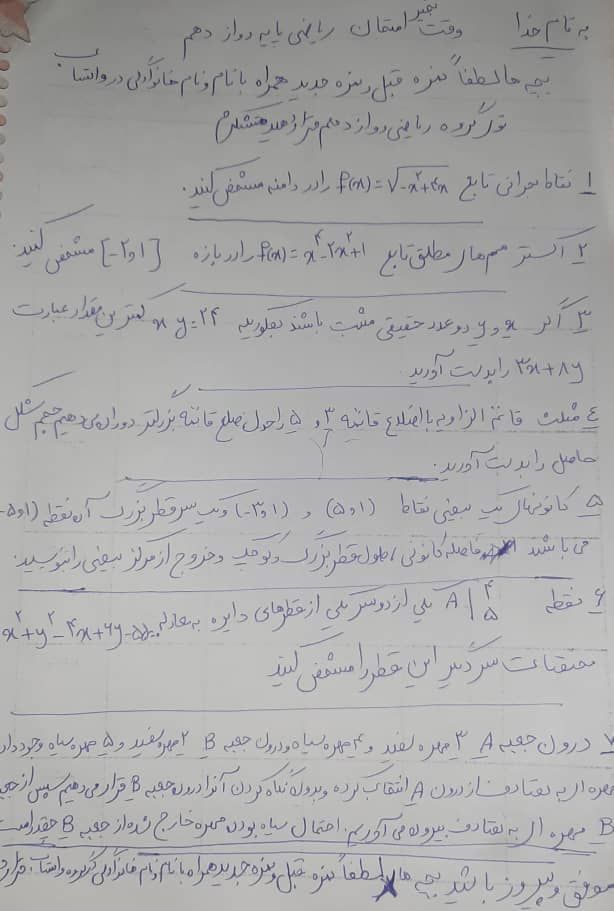 به نام خدا وقت بخیر امتحان ریاضی پایه دوازدهم
بچه ها لطفاً نمره قبل و نمره جدید همراه با نام و نام خانوادگی در واتساپ
تو گروه ریاضی دوازدهم قرار دهید متشکرم
۱ نقاط بحرانی تابع f(x)=√-x²+4x را در دامنه مشخص کنید.
۲ اکسترمم های مطلق تابع f(x)=x⁴-2x²+1 را در بازه [-۲و۱] مشخص کنید.
۳ اگر x و y دو عدد حقیقی مثبت باشند بطوریکه xy=۲۴ کمترین مقدار عبارت
۳x+۸y را بدست آورید.
٤ مثلث قائم الزاویه با اضلاع قائمه ۳ و ۵ را حول ضلع قائمه بزرگتر دوران می دهیم حجم شکل
حاصل را بدست آورید.
۵ کانونهای یک بیضی نقاط (۱و۵) و (۱و۳-) و یک سر قطر بزرگ آن نقطه (۱و۵-
می باشد فاصله کانونی، طول قطر بزرگ و کوچک و خروج از مرکز بیضی را بنویسید.
۶ نقطه A|۴ ۵ یکی از دو سر یکی از قطرهای دایره به معادله x²+y²-۴x+۶y-۵۵=۰
مختصات سر دیگر این قطر را مشخص کنید
۷ درون جعبه A ۳ مهره سفید و ۴ مهره سیاه و درون جعبه B ۲ مهره سفید و ۵ مهره سیاه وجود دارد
مهره ای به تصادف از درون A انتخاب کرده و بدون نگاه کردن آنرا درون جعبه B قرار می دهیم سپس از جعبه
B مهره ای به تصادف بیرون می آوریم. احتمال سیاه بودن مهره خارج شده از جعبه B چقدر است
موفق و پیروز باشید بچه ها لطفاً نمره قبل و نمره جدید همراه با نام و نام خانوادگی گروه واتساپ قرار د